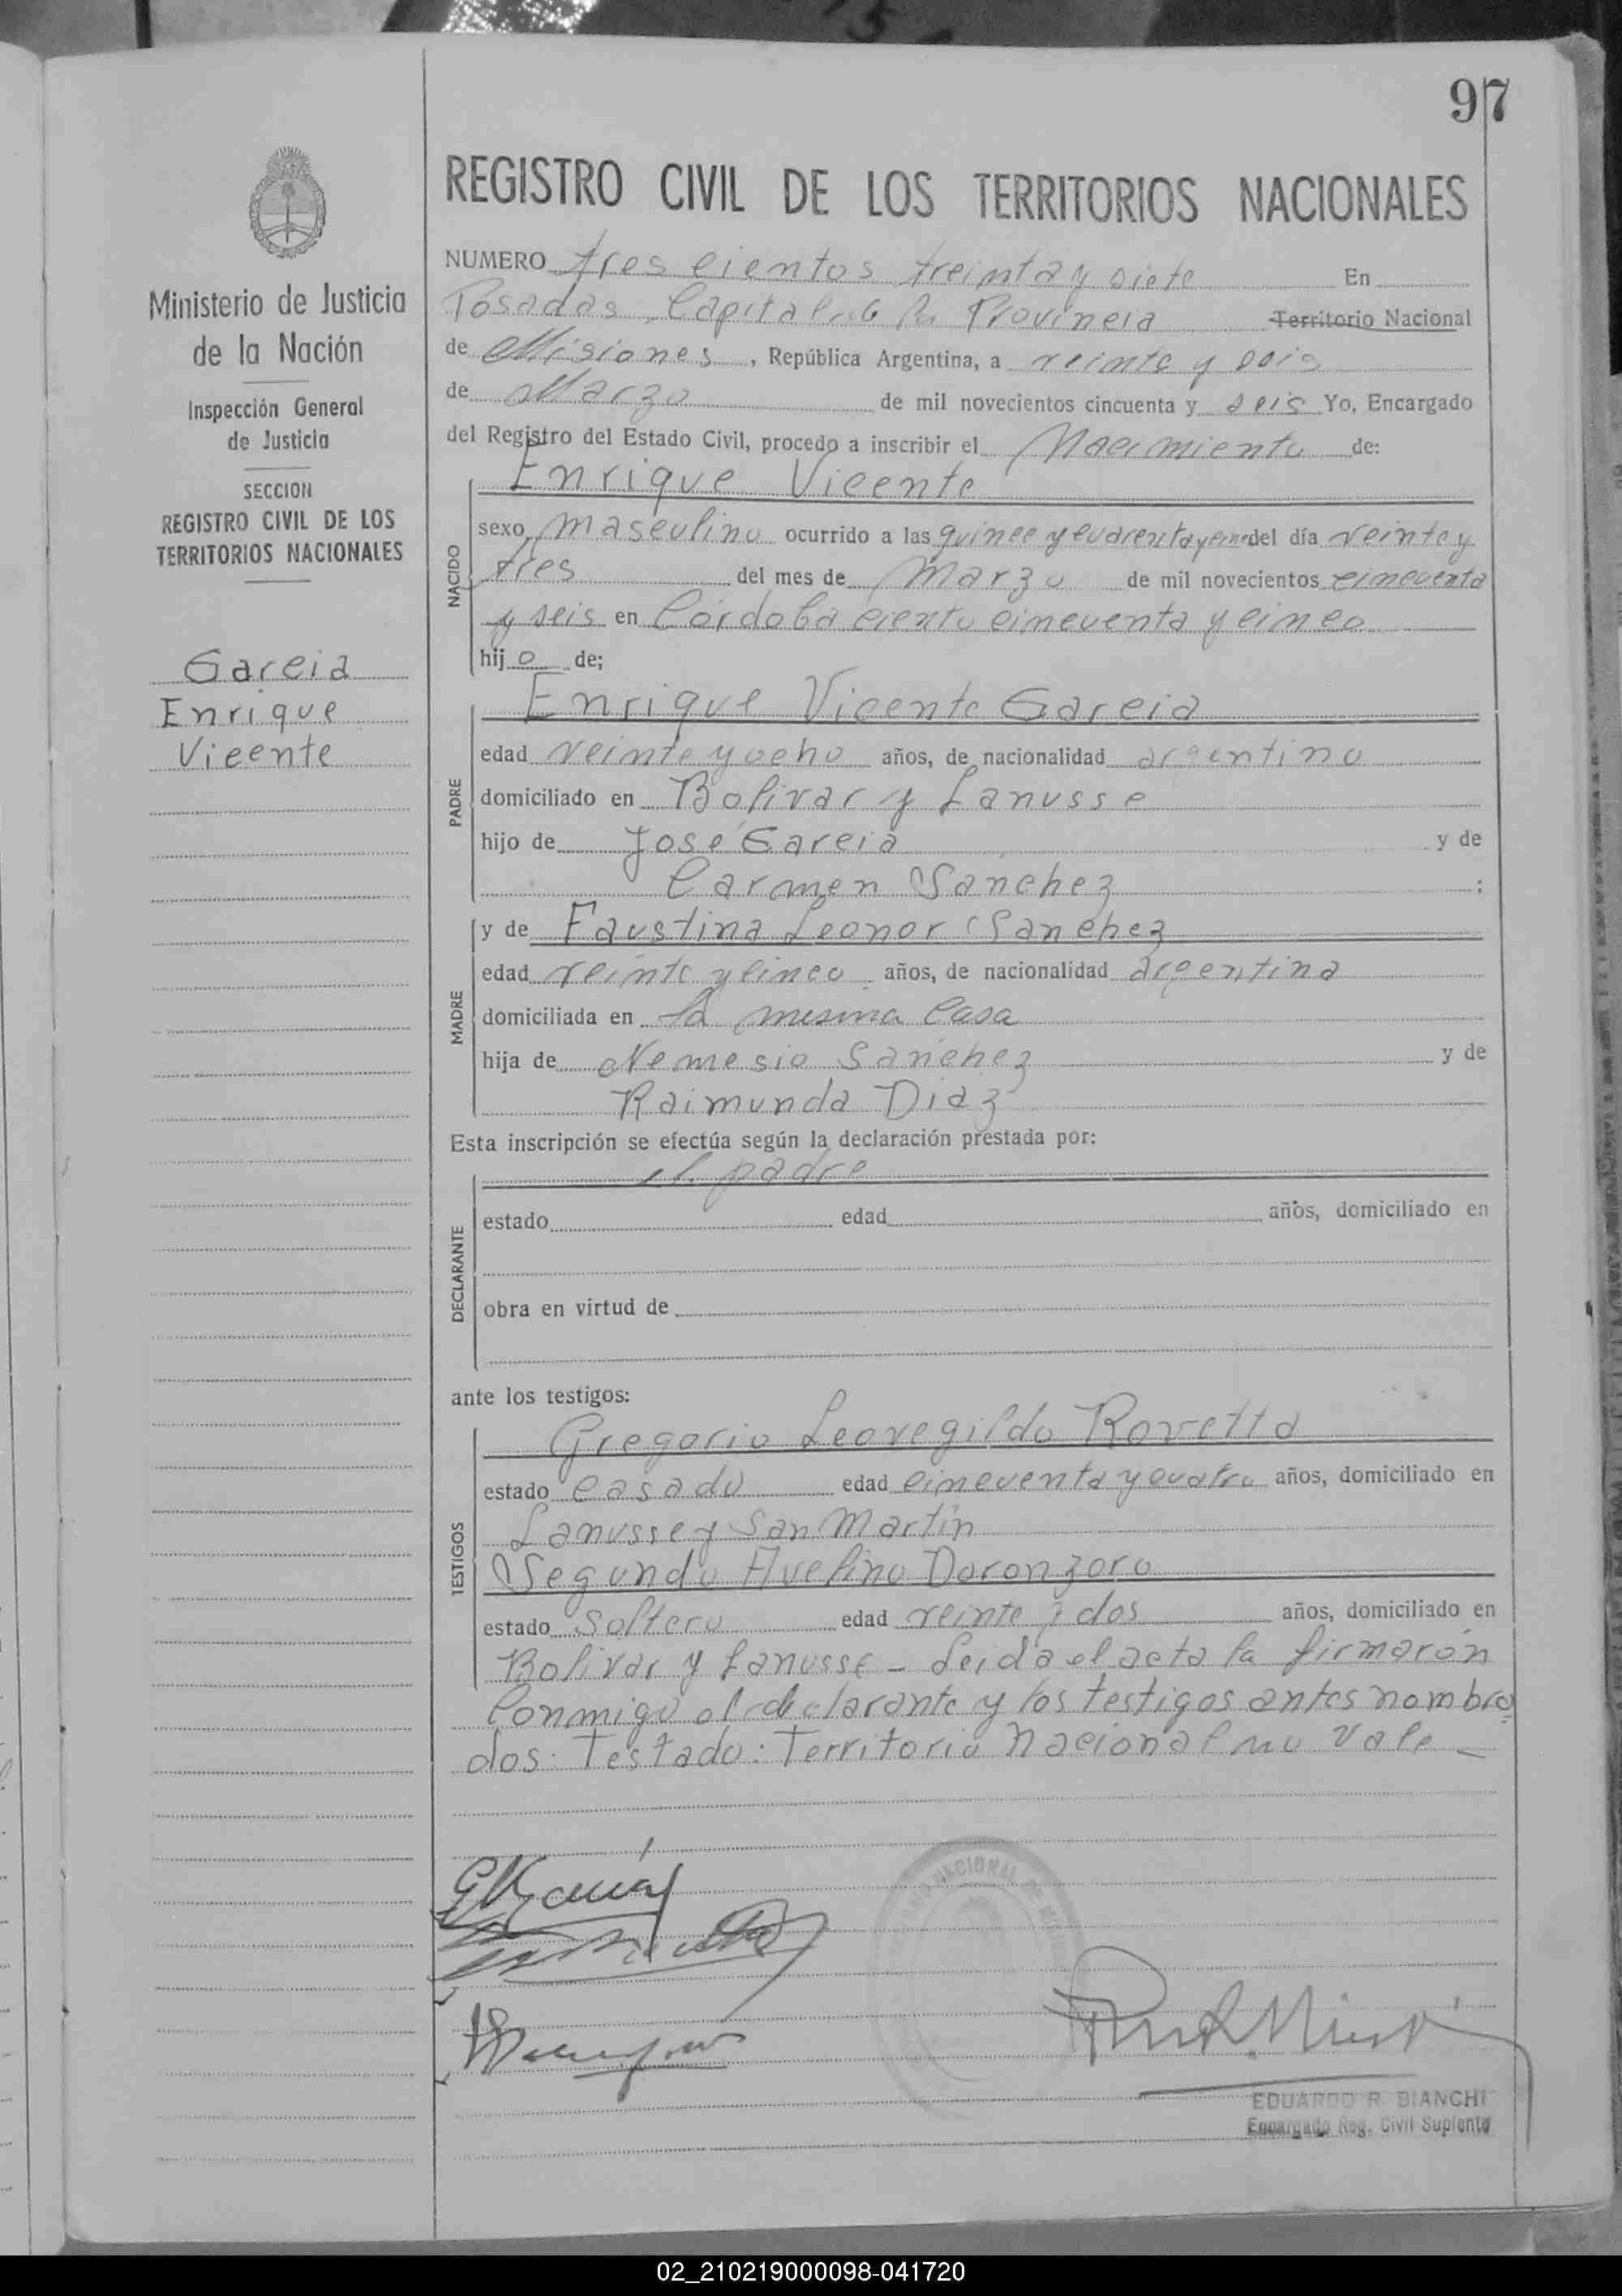 97
REGISTRO CIVIL DE LOS TERRITORIOS NACIONALES
Ministerio de Justicia
de la Nación
Inspección General
de Justicia
SECCION
REGISTRO CIVIL DE LOS
TERRITORIOS NACIONALES
Garcia
Enrique
Vicente
NUMERO tres cientos treinta y siete En
Posadas, Capital de la Provincia Territorio Nacional
de Misiones, República Argentina, a veinte y seis
de Marzo de mil novecientos cincuenta y seis Yo, Encargado
del Registro del Estado Civil, procedo a inscribir el Nacimiento de:
NACIDO
Enrique Vicente
sexo masculino ocurrido a las quince y cuarenta y cinco del día veinte y
tres del mes de Marzo de mil novecientos cincuenta
y seis en Córdoba ciento cincuenta y cinco
hijo de;
PADRE
Enrique Vicente Garcia
edad veinte y ocho años, de nacionalidad argentino
domiciliado en Bolivar y Lanusse
hijo de José Garcia y de
Carmen Sanchez ;
MADRE
y de Faustina Leonor Sanchez
edad veinte y cinco años, de nacionalidad argentina
domiciliada en la misma Casa
hija de Nemesio Sanchez y de
Raimunda Diaz
Esta inscripción se efectúa según la declaración prestada por:
DECLARANTE
el padre
estado edad años, domiciliado en
obra en virtud de
ante los testigos:
TESTIGOS
Gregorio Leovegildo Rovetta
estado casado edad cincuenta y cuatro años, domiciliado en
Lanusse y San Martín
Segundo Avelino Doronzoro
estado Soltero edad veinte y dos años, domiciliado en
Bolivar y Lanusse - Leida el acta la firmaron
Conmigo el declarante y los testigos antes nombra
dos. Testado: Territorio Nacional no vale -
NACIONAL
EDUARDO R. BIANCHI
Encargado Reg. Civil Suplente
02_210219000098-041720